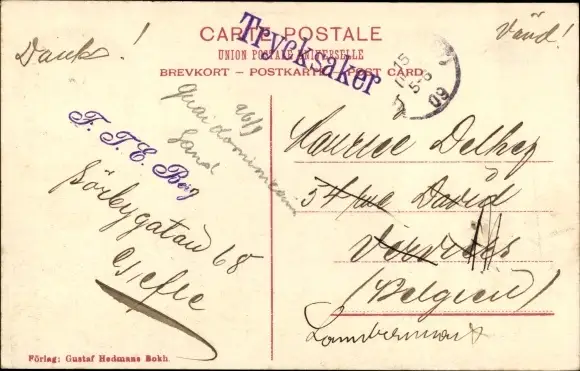 CARTE POSTALE
UNION POSTALE UNIVERSELLE
BREVKORT – POSTKARTE – POST CARD
Trycksaker
Dank!
Vänd!
5-8
09
96/9
Quai dominicain
Gand
F. T. E. Berg
Sörbygatan 68
Gefle
Maurice Delhez
54 rue David
Verviers
(Belgien)
Lambermont
Förlag: Gustaf Hedmans Bokh.